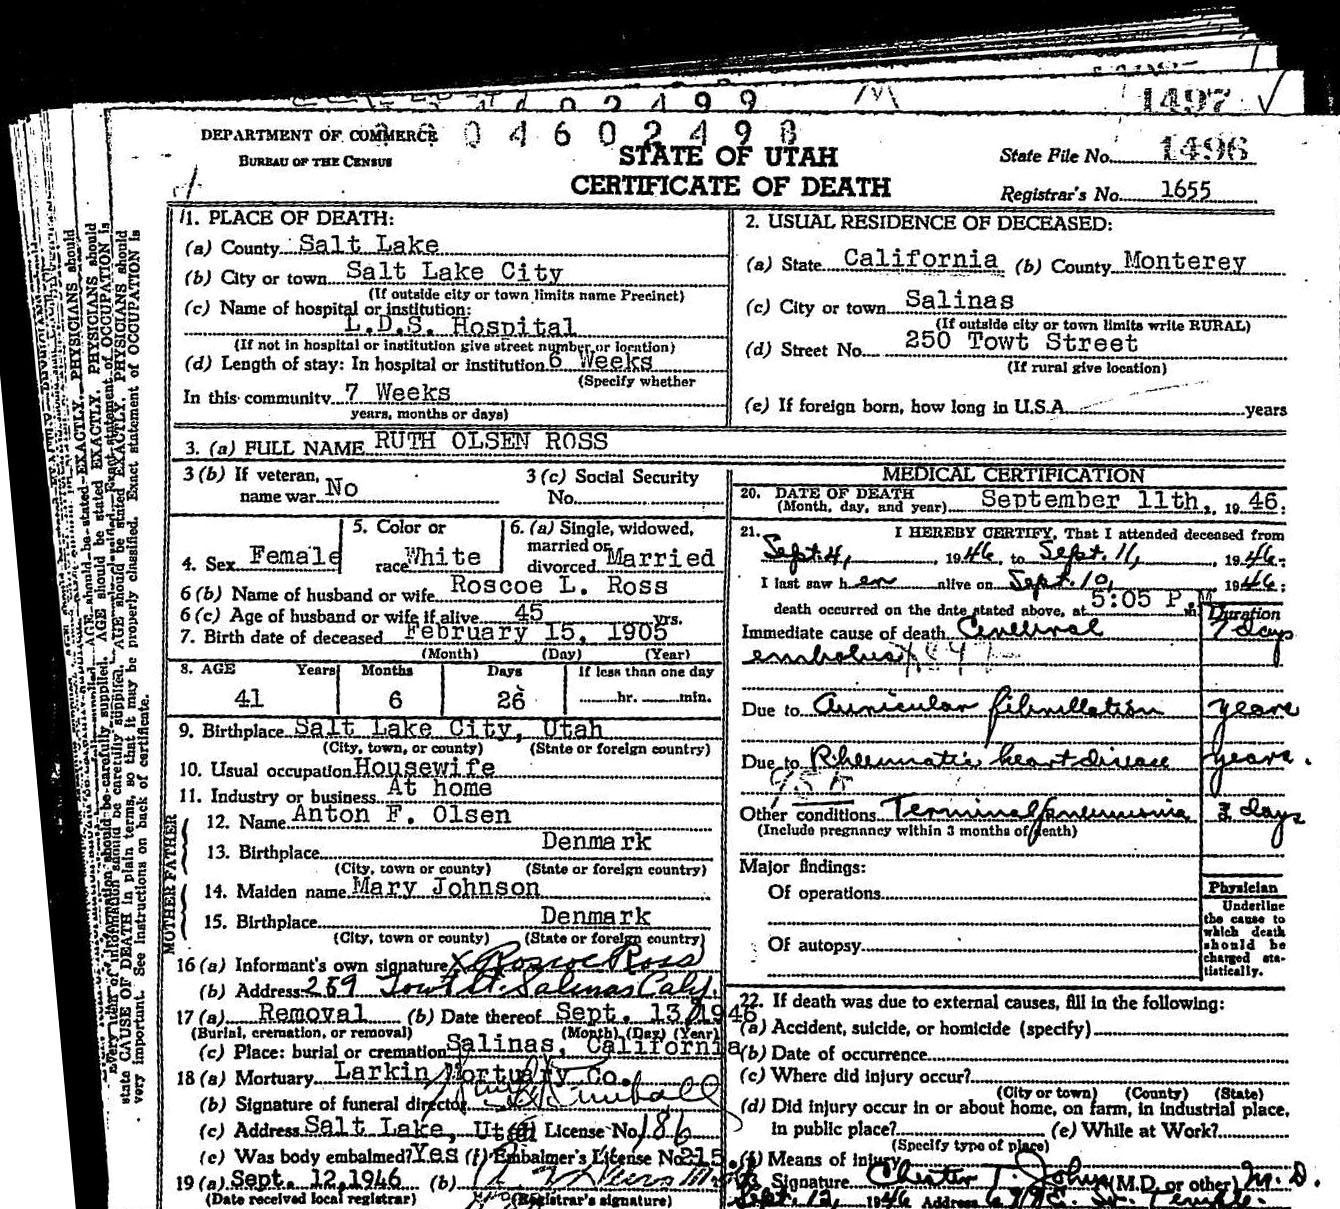 1497 ✓
0 4 6 0 2 4 9 8
DEPARTMENT OF COMMERCE
BUREAU OF THE CENSUS
STATE OF UTAH
CERTIFICATE OF DEATH
State File No. 1496
Registrar's No. 1655
1. PLACE OF DEATH:
(a) County Salt Lake
(b) City or town Salt Lake City
(If outside city or town limits name Precinct)
(c) Name of hospital or institution:
L.D.S. Hospital
(If not in hospital or institution give street number or location)
(d) Length of stay: In hospital or institution 6 Weeks
(Specify whether
In this community 7 Weeks
years, months or days)
2. USUAL RESIDENCE OF DECEASED:
(a) State California (b) County Monterey
(c) City or town Salinas
(If outside city or town limits write RURAL)
(d) Street No. 250 Towt Street
(If rural give location)
(e) If foreign born, how long in U.S.A. years
3. (a) FULL NAME RUTH OLSEN ROSS
3 (b) If veteran, name war No
3 (c) Social Security No.
4. Sex Female
5. Color or race White
6. (a) Single, widowed, married or divorced Married
6 (b) Name of husband or wife Roscoe L. Ross
6 (c) Age of husband or wife if alive 45 yrs.
7. Birth date of deceased February 15, 1905
(Month) (Day) (Year)
8. AGE Years Months Days If less than one day
41 6 26 hr. min.
9. Birthplace Salt Lake City, Utah
(City, town, or county) (State or foreign country)
10. Usual occupation Housewife
11. Industry or business At home
FATHER
12. Name Anton F. Olsen
13. Birthplace Denmark
(City, town or county) (State or foreign country)
MOTHER
14. Maiden name Mary Johnson
15. Birthplace Denmark
(City, town or county) (State or foreign country)
16 (a) Informant's own signature x Roscoe Ross
(b) Address 259 Towt St. Salinas Calif.
17 (a) Removal (b) Date thereof Sept. 13, 1946
(Burial, cremation, or removal) (Month) (Day) (Year)
(c) Place: burial or cremation Salinas, California
18 (a) Mortuary Larkin Mortuary Co.
(b) Signature of funeral director Kimball
(c) Address Salt Lake, Utah License No. 186
(e) Was body embalmed? Yes (f) Embalmer's License No. 215
19 (a) Sept. 12, 1946 (b)
(Date received local registrar) (Registrar's signature)
MEDICAL CERTIFICATION
20. DATE OF DEATH
(Month, day, and year) September 11th, 1946.
21. I HEREBY CERTIFY, That I attended deceased from
Sept. 4, 1946, to Sept. 11, 1946;
I last saw her alive on Sept. 10, 1946;
death occurred on the date stated above, at 5:05 P m. M
Duration
Immediate cause of death Cerebral 7 days
embolus
Due to Auricular fibrillation years
Due to Rheumatic heart disease years.
95
Other conditions Terminal pneumonia days
(Include pregnancy within 3 months of death)
Major findings:
Of operations
Of autopsy
Physician
Underline
the cause to
which death
should be
charged sta-
tistically.
22. If death was due to external causes, fill in the following:
(a) Accident, suicide, or homicide (specify)
(b) Date of occurrence
(c) Where did injury occur?
(City or town) (County) (State)
(d) Did injury occur in or about home, on farm, in industrial place,
in public place? (e) While at Work?
(Specify type of place)
(f) Means of injury
23. Signature Chester T. Johns (M.D. or other) M.D.
Sept. 12, 1946 Address Temple
AGE should be stated EXACTLY. PHYSICIANS should
state CAUSE OF DEATH in plain terms, so that it may be properly classified. Exact statement of OCCUPATION is
very important. See instructions on back of certificate.